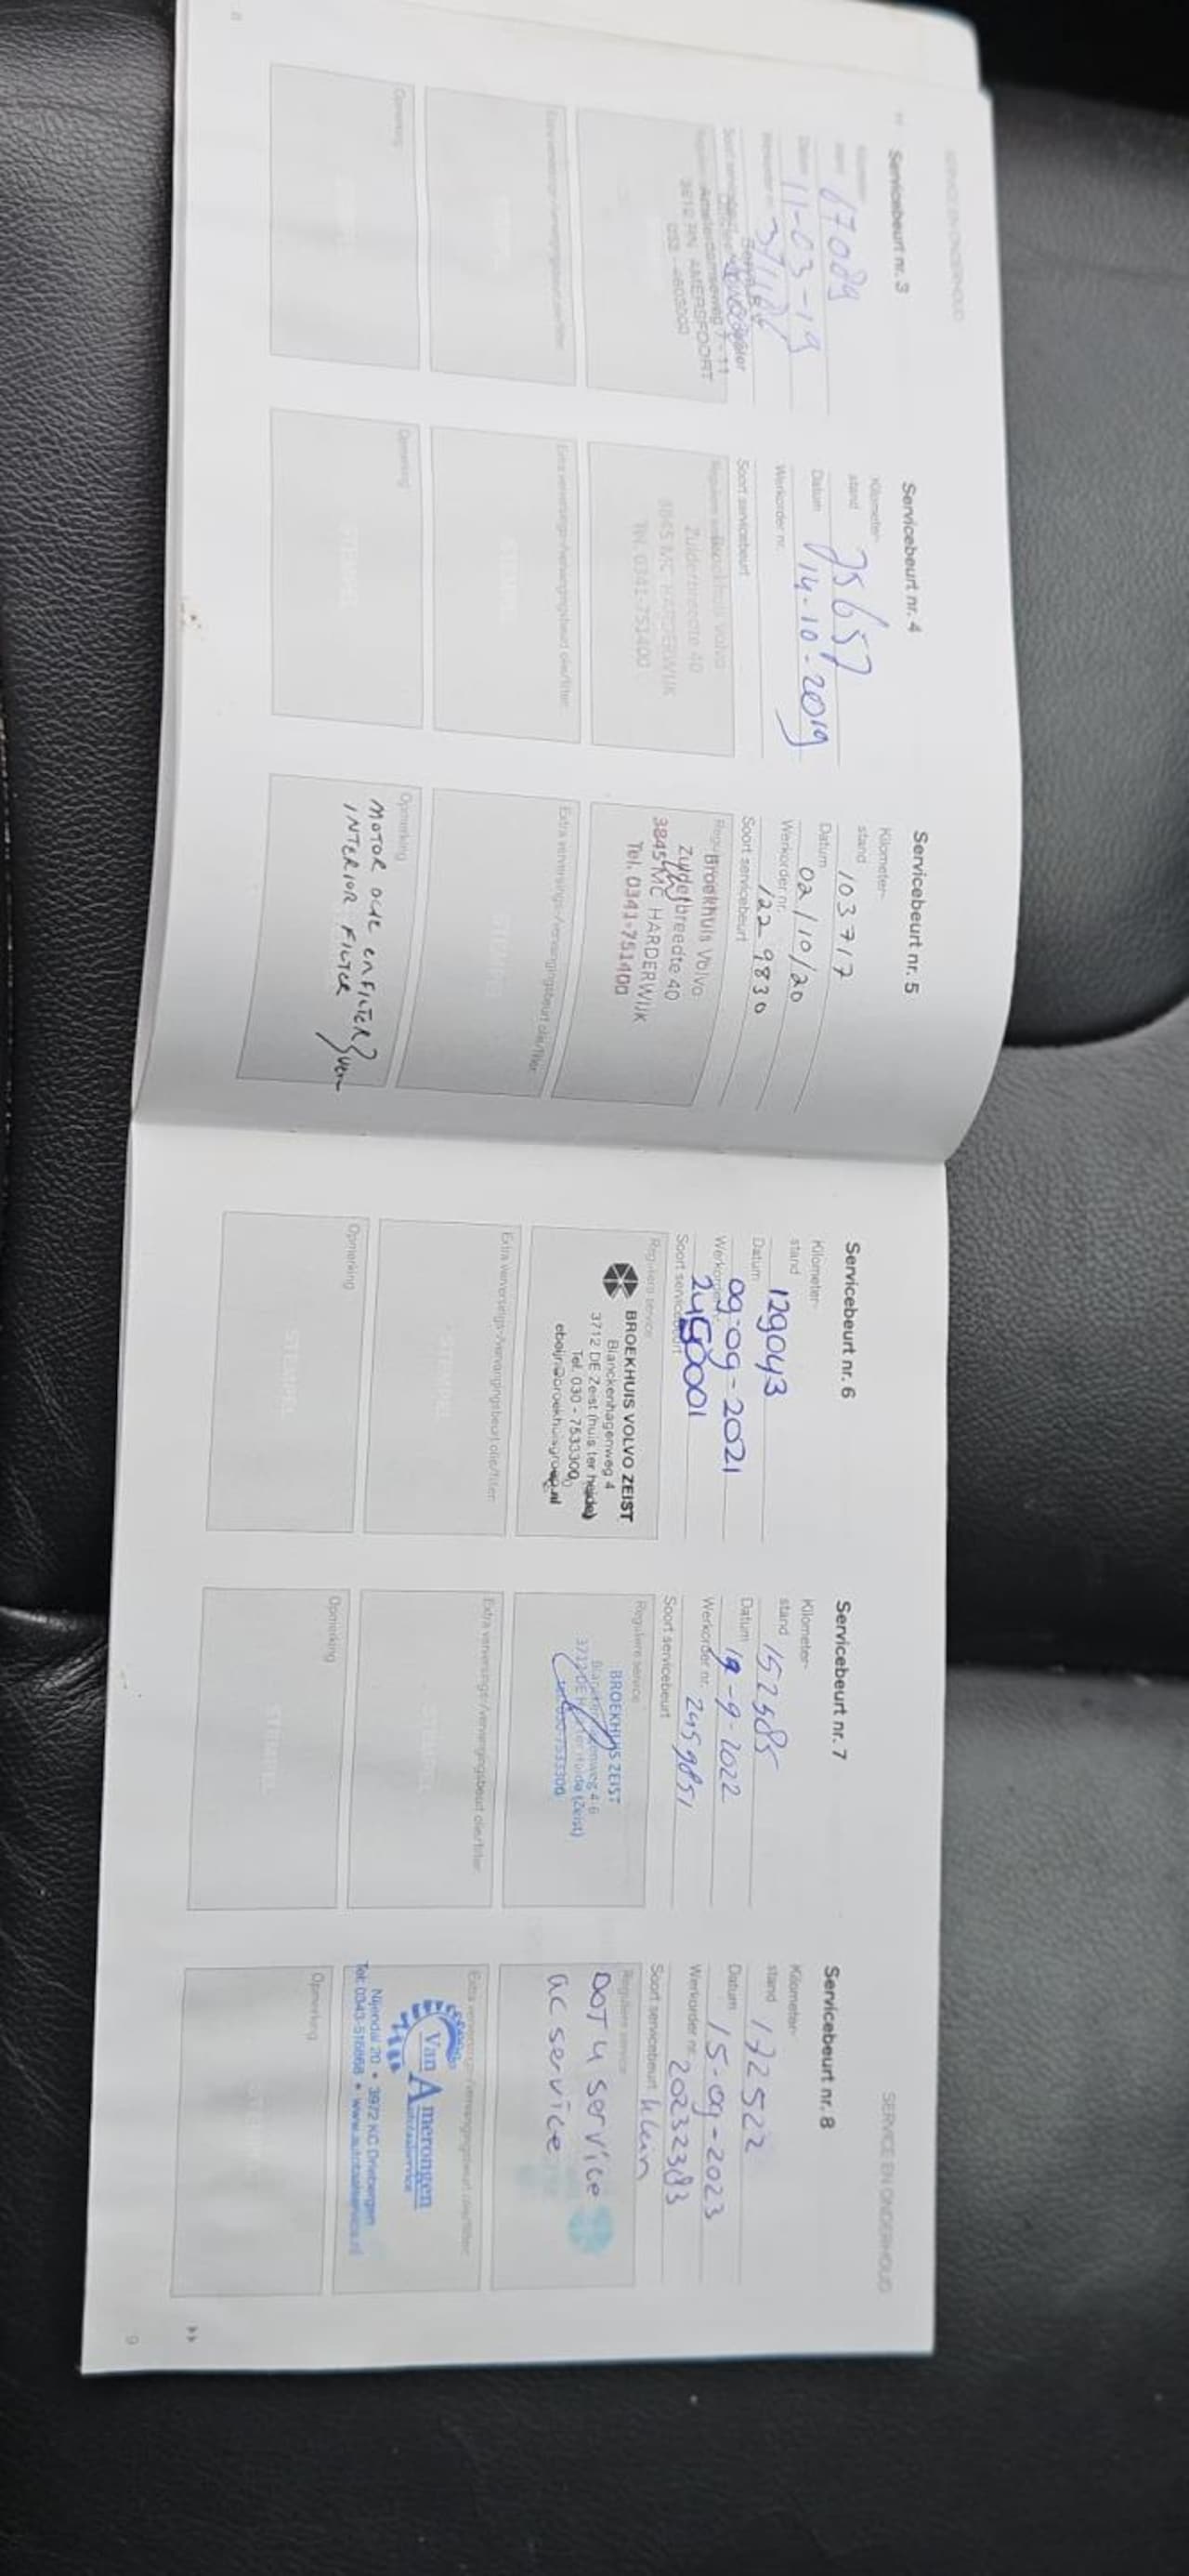 SERVICE EN ONDERHOUD
Servicebeurt nr. 3
Kilometer-
stand 67089
Datum 11-03-19
Werkorder nr.
Soort servicebeurt
Amsterdamseweg 7-11
AMERSFOORT
Extra verversings-/vervangingsbeurt olie/filter
Opmerking
8
Servicebeurt nr. 4
Kilometer-
stand 75657
Datum 14-10-2019
Werkorder nr.
Soort servicebeurt
Reguliere service
Broekhuis Volvo
Zuiderbreedte 40
3845 MC HARDERWIJK
Tel. 0341-751400
Extra verversings-/vervangingsbeurt olie/filter
STEMPEL
Opmerking
STEMPEL
Servicebeurt nr. 5
Kilometer-
stand 103717
Datum 02/10/20
Werkorder nr. 1229830
Soort servicebeurt
Broekhuis Volvo
Zuiderbreedte 40
3845 MC HARDERWIJK
Tel. 0341-751400
Extra verversings-/vervangingsbeurt olie/filter
STEMPEL
Opmerking
MOTOR OLIE EN FILTER } ver
INTERIOR FILTER
Servicebeurt nr. 6
Kilometer-
stand 129043
Datum 09-09-2021
Werkorder 2450001
Soort servicebeurt
Reguliere service
BROEKHUIS VOLVO ZEIST
Blanckenhagenweg 4
3712 DE Zeist (huis ter heide)
Tel. 030 - 7533300
Extra verversings-/vervangingsbeurt olie/filter
STEMPEL
Opmerking
STEMPEL
SERVICE EN ONDERHOUD
Servicebeurt nr. 7
Kilometer-
stand 152385
Datum 19-9-2022
Werkorder nr. 2459851
Soort servicebeurt
Reguliere service
BROEKHUIS ZEIST
Extra verversings-/vervangingsbeurt olie/filter
STEMPEL
Opmerking
STEMPEL
Servicebeurt nr. 8
Kilometer-
stand 172522
Datum 15-09-2023
Werkorder nr. 20232383
Soort servicebeurt klein
Reguliere service
DOT 4 service
ac service
Extra verversings-/vervangingsbeurt olie/filter
Van Amerongen
Autotaalservice
Nijendal 20 • 3972 KC Driebergen
Tel: 0343-515868 • www.autotaalservice.nl
Opmerking
9